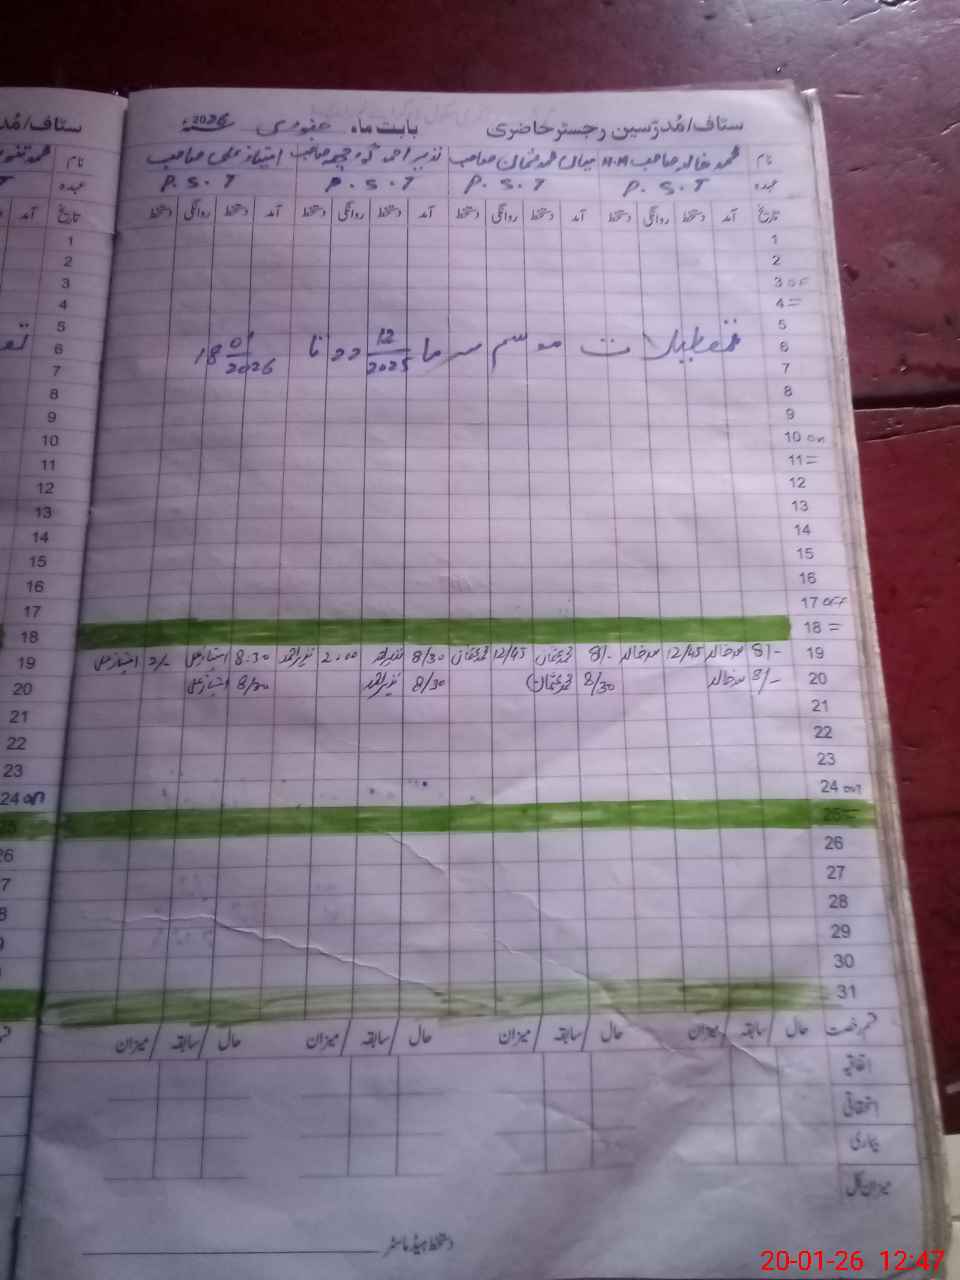 سٹاف/مُدرّسین رجسٹر حاضری بابت ماہ جنوری سنہ 2026
نام محمد خالد صاحب H.M میاں محمد عثمان صاحب نذیر احمد صاحب امتیاز علی صاحب
عہدہ P.S.T P.S.T P.S.T P.S.T
تاریخ آمد دستخط روانگی دستخط آمد دستخط روانگی دستخط آمد دستخط روانگی دستخط آمد دستخط روانگی دستخط
1
2
3 OFF
4 =
5
تعطیلات موسم سرما 22 12/2025 تا 18 01/2026
6
7
8
9
10 on
11 =
12
13
14
15
16
17 OFF
18 =
19 8/- محمد خالد 12/45 محمد خالد 8/- محمد عثمان 12/45 محمد عثمان 8/30 نذیر احمد 2.00 نذیر احمد 8.30 امتیاز علی 2/- امتیاز علی
20 8/- محمد خالد 8/30 محمد عثمان 8/30 نذیر احمد 8/30 امتیاز علی
21
22
23
24 on
25 =
26
27
28
29
30
31
قسم رخصت حال / سابقہ / میزان حال / سابقہ / میزان حال / سابقہ / میزان حال / سابقہ / میزان
اتفاقیہ
استحقاقی
بیماری
میزان کل
دستخط ہیڈ ماسٹر
سٹاف/مُد
نام
عہدہ
تاریخ آمد
1
2
3
4
5
6
7
8
9
10
11
12
13
14
15
16
17
18
19
20
21
22
23
24 on
25
26
20-01-26 12:47